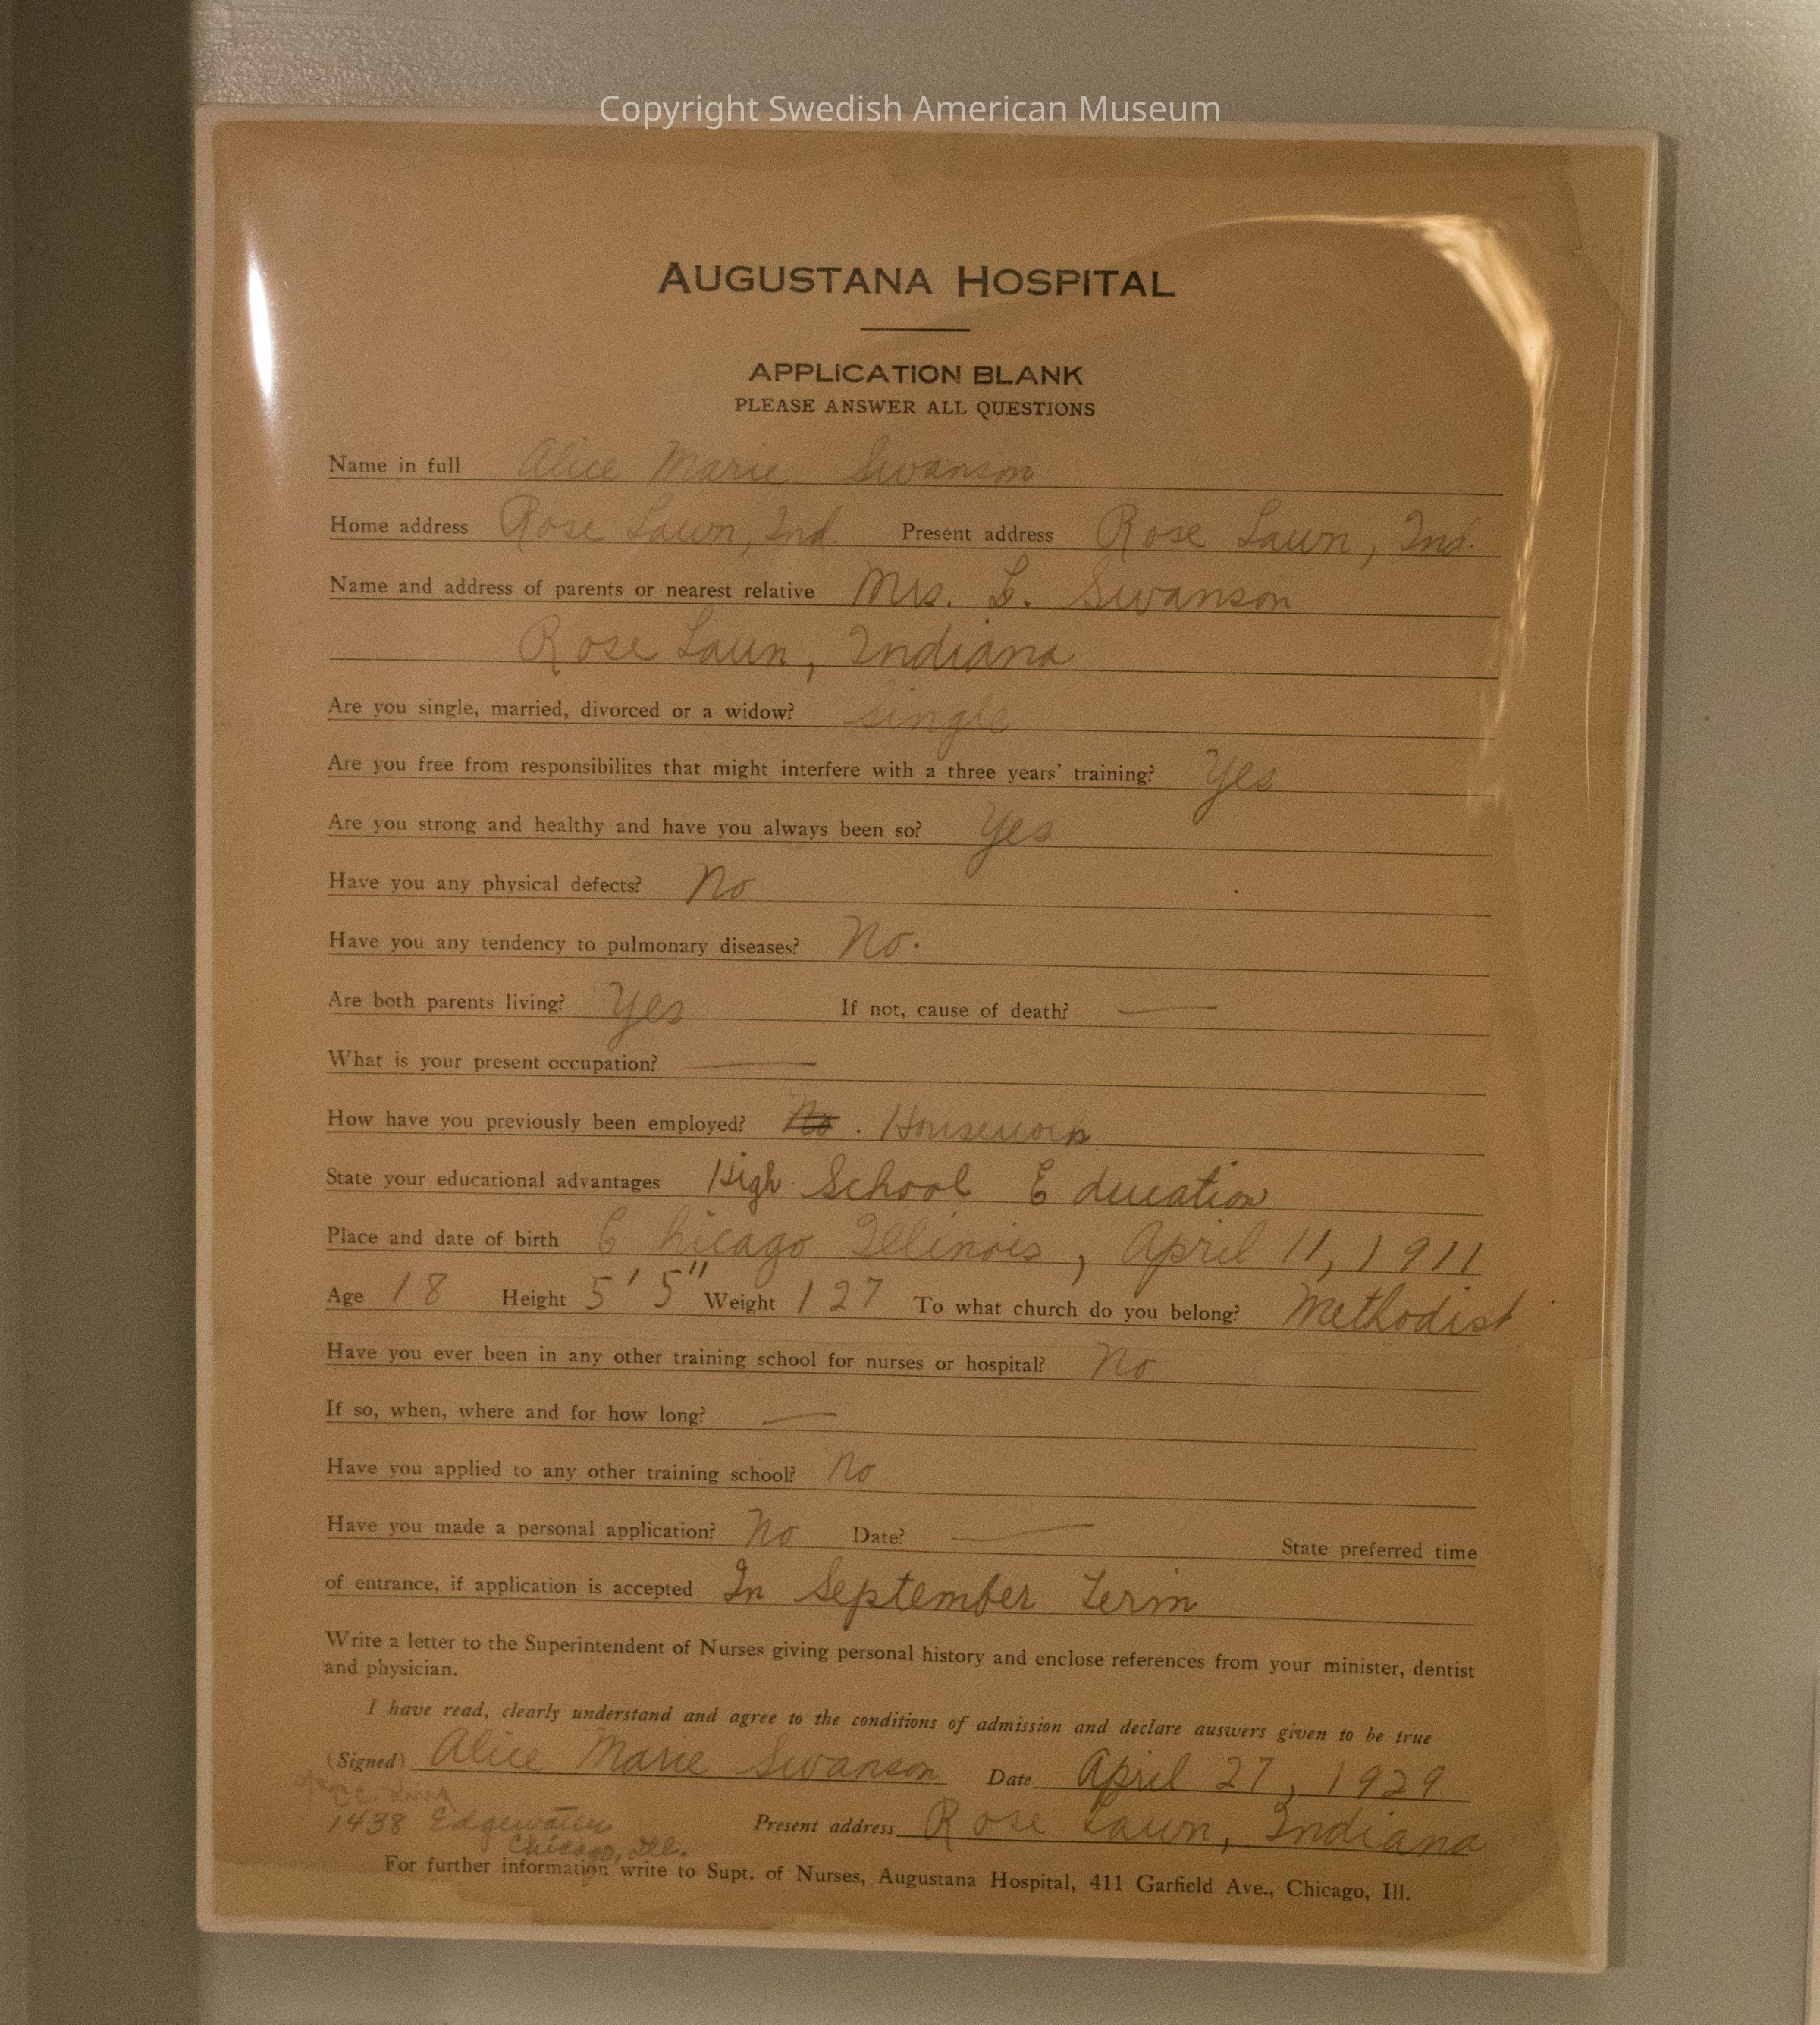 Copyright Swedish American Museum
AUGUSTANA HOSPITAL
APPLICATION BLANK
PLEASE ANSWER ALL QUESTIONS
Name in full Alice Marie Swanson
Home address Rose Lawn, Ind. Present address Rose Lawn, Ind.
Name and address of parents or nearest relative Mrs. L. Swanson
Rose Lawn, Indiana
Are you single, married, divorced or a widow? Single
Are you free from responsibilites that might interfere with a three years' training? Yes
Are you strong and healthy and have you always been so? Yes
Have you any physical defects? No
Have you any tendency to pulmonary diseases? No.
Are both parents living? Yes If not, cause of death? —
What is your present occupation? —
How have you previously been employed? No . Housework
State your educational advantages High School Education
Place and date of birth Chicago Illinois, April 11, 1911
Age 18 Height 5' 5" Weight 127 To what church do you belong? Methodist
Have you ever been in any other training school for nurses or hospital? No
If so, when, where and for how long? —
Have you applied to any other training school? No
Have you made a personal application? No Date? — State preferred time
of entrance, if application is accepted In September term
Write a letter to the Superintendent of Nurses giving personal history and enclose references from your minister, dentist
and physician.
I have read, clearly understand and agree to the conditions of admission and declare auswers given to be true
(Signed) Alice Marie Swanson Date April 27, 1929
1438 Edgewater Present address Rose Lawn, Indiana
Chicago, Ill.
For further information write to Supt. of Nurses, Augustana Hospital, 411 Garfield Ave., Chicago, Ill.